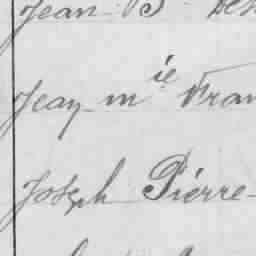 Jean B
Jean mie Fran
Joseph Pierre